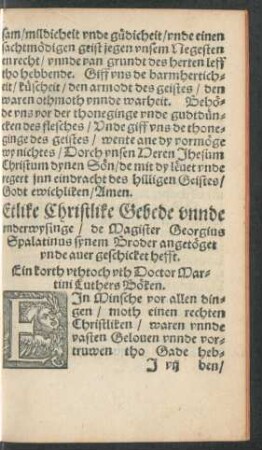 sam/mildicheit vnde gůdicheit/vnde einen
sachtmödigen geist jegen vnsem Negesten
en recht/ vnnde van grundt des herten leff
tho hebbende. Giff vns de barmhertich-
eit/ kůscheit/ den armodt des geistes/ den
waren othmoth vnnde warheit. Behö-
de vns vor der thoneginge vnde gudtdůn-
cken des flesches/ Vnde giff vns de thone-
ginge des geistes/ wente ane dy vormöge
wy nichtes/ Dorch vnsen Heren Jhesum
Christum dynen Sön/ de mit dy leuet vnde
regert jnn eindracht des hilligen Geistes/
Godt ewichliken/ Amen.
Etlike Christlike Gebede vnnde
vnderwysinge/ de Magister Georgius
Spalatinus synem Broder angetöget
vnde auer geschicket hefft.
Ein korth vthtoch vth Doctor Mar-
tini Luthers Böken.
EIn Minsche vor allen din-
gen/ moth einen rechten
Christliken/ waren vnnde
vasten Gelouen vnnde vor-
truwen tho Gade heb-
J vij ben/